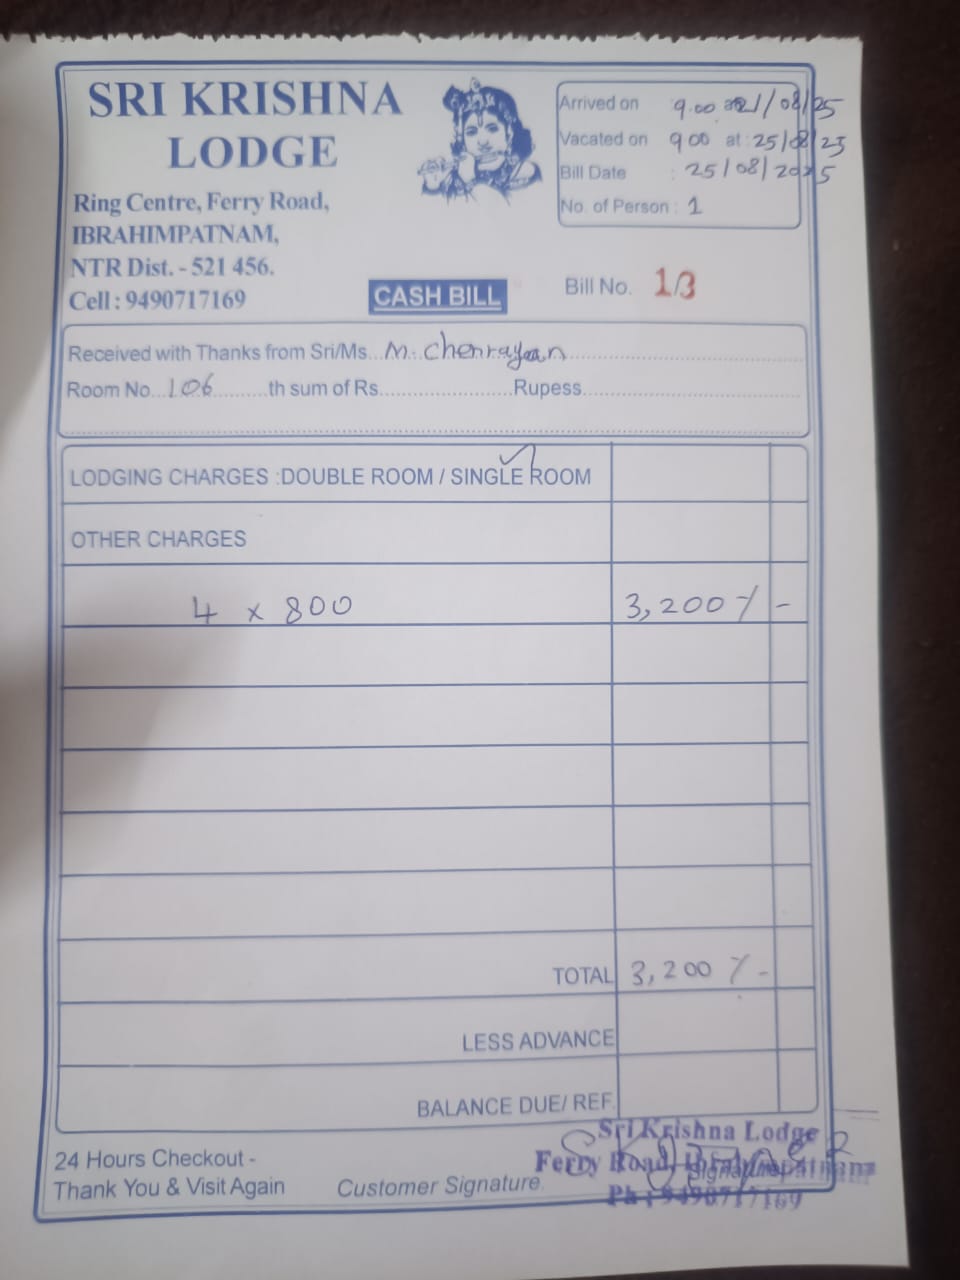 SRI KRISHNA
LODGE
Ring Centre, Ferry Road,
IBRAHIMPATNAM,
NTR Dist. - 521 456.
Cell : 9490717169
Arrived on : 9.00 at 21/08/25
Vacated on 9 00 at : 25/08/25
Bill Date : 25/08/2025
No. of Person : 1
CASH BILL
Bill No. 13
Received with Thanks from Sri/Ms... M. Chenrayan
Room No... 106 ... th sum of Rs. ... Rupess.
LODGING CHARGES :DOUBLE ROOM / SINGLE ROOM
OTHER CHARGES
4 x 800 3,200 /-
TOTAL 3,200 /-
LESS ADVANCE
BALANCE DUE/ REF.
24 Hours Checkout -
Thank You & Visit Again
Customer Signature.
Signature
Sri Krishna Lodge
Ferry Road, Ibrahimpatnam
Ph : 9490717169